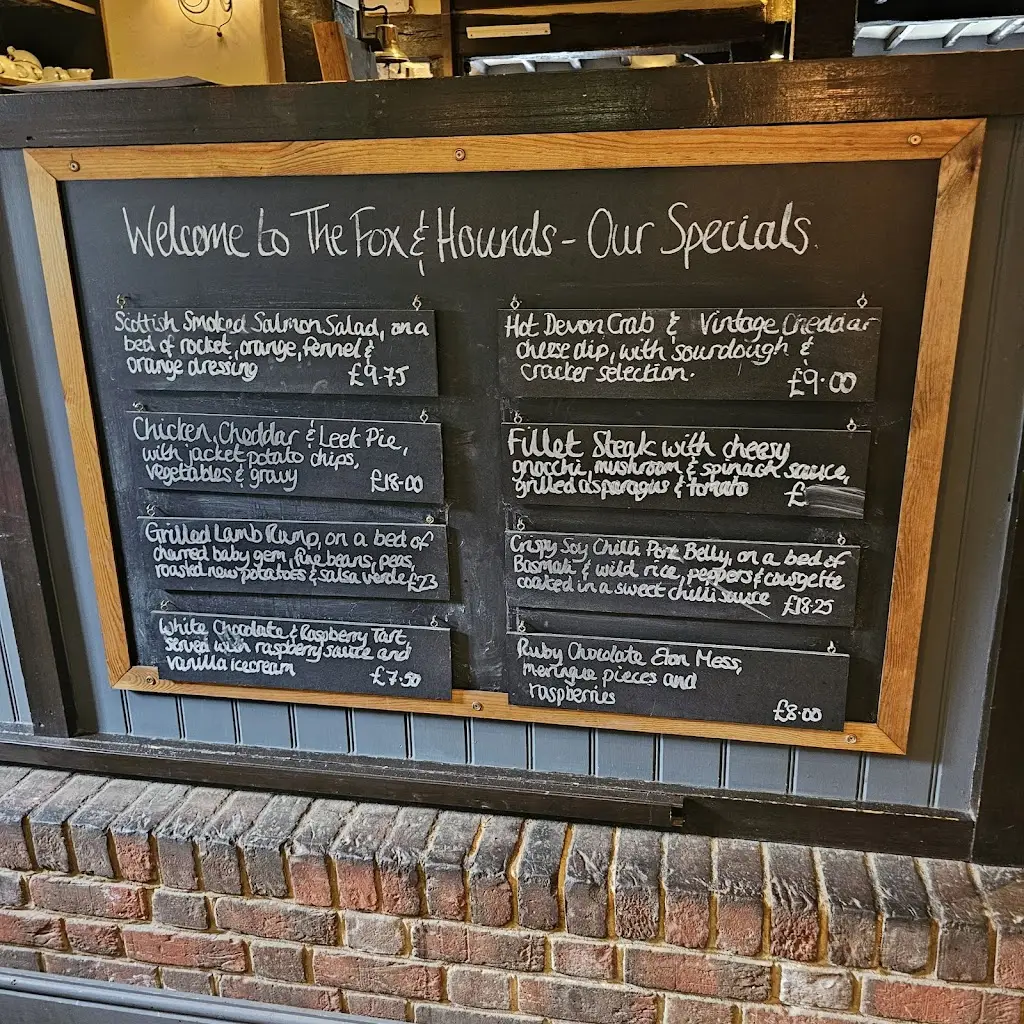 Welcome to The Fox & Hounds - Our Specials.
Scottish Smoked Salmon Salad, on a
bed of rocket, orange, fennel &
orange dressing £9.75
Chicken, Cheddar & Leek Pie,
with jacket potato chips,
vegetables & gravy £18.00
Grilled Lamb Rump, on a bed of
charred baby gem, fine beans, peas,
roasted new potatoes & salsa verde £23
White Chocolate & Raspberry Tart
served with raspberry sauce and
vanilla icecream £7.50
Hot Devon Crab & Vintage Cheddar
cheese dip, with sourdough &
cracker selection. £9.00
Fillet Steak with cheesy
gnocchi, mushroom & spinach sauce,
grilled asparagus & tomato £
Crispy Soy Chilli Pork Belly, on a bed of
Basmati & wild rice, peppers & courgette
coated in a sweet chilli sauce £18.25
Ruby Chocolate Eton Mess,
meringue pieces and
raspberries £8.00